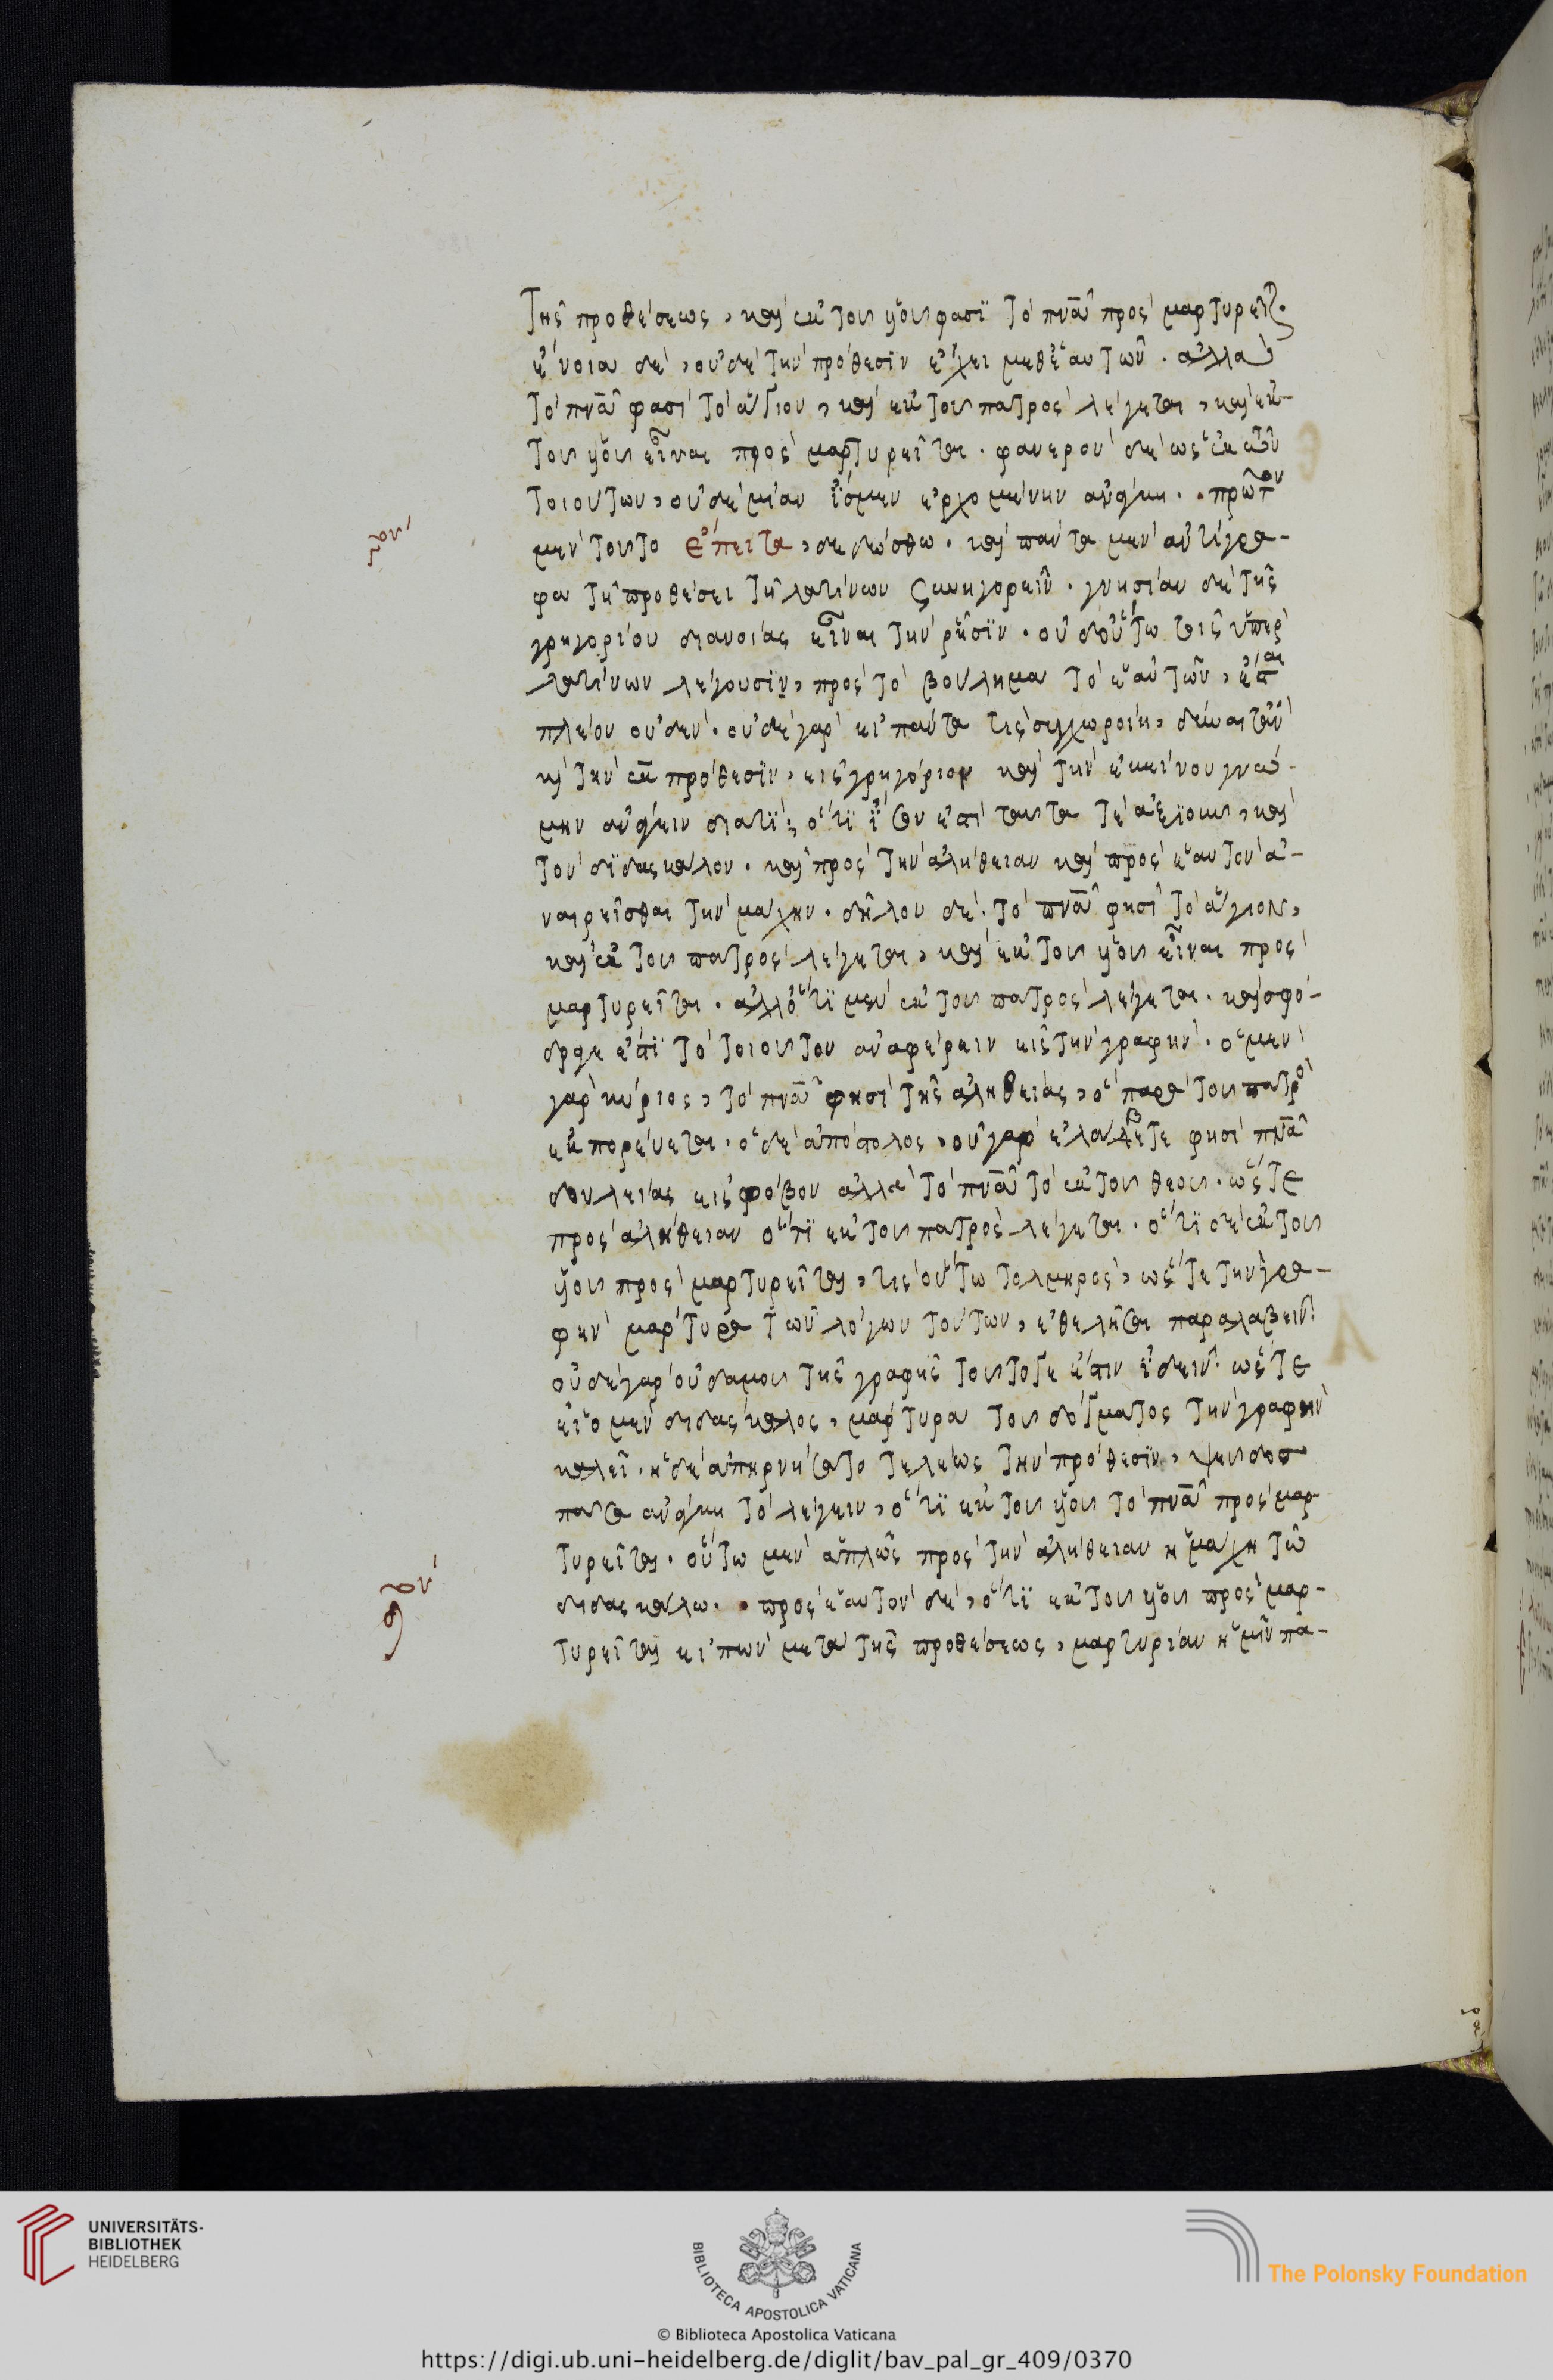 τῆς προθέσεως, καὶ ἐκ τοῦ υἱοῦ φασὶ τὸ πνᾶ προς μαρτυρεῖται.
ἔννοια δὲ, οὐδὲ τὴν πρόθεσιν ἔχει μεθ' ἑαυτῶν. ἀλλὰ
τὸ πνᾶ φασὶ τὸ ἅγιον, καὶ ἐκ τοῦ πατρὸς λέγεται, καὶ ἐκ
τοῦ υἱοῦ εἶναι προς μαρτυρεῖται. φανερὸν δὲ ὡς ἐκ τῶν
τοιούτων, οὐδεμίαν ἴσμεν ἐρχομένην ἀνάγκην. πρῶτον
μὲν τοῦτο ἔπειτα, δεδόσθω. καὶ πάντα μὲν ἀντίγρα-
φα τῇ προθέσει τῇ λατίνων συνηγορεῖν. γνησίαν δὲ τῆς
γρηγορίου διανοίας εἶναι τὴν ῥῆσιν. οὐδ' οὕτω τοῖς ὑπὲρ
λατίνων λέγουσιν, πρὸς τὸ βούλημα τὸ ἑαυτῶν, ἔσται
πλέον οὐδέν. οὐδὲ γὰρ εἰ πάντα τίς συγχωροίη, δύναιτ' ἂν
καὶ τὴν ἐκ πρόθεσιν, εἰς γρηγόριον καὶ τὴν ἐκείνου γνώ-
μην ἀνάγειν διατί; ὅτι
τὸν διδάσκαλον. καὶ πρὸς τὴν ἀλήθειαν καὶ πρὸς ἑαυτὸν ἀ-
ναιρεῖσθαι τὴν μάχην. δῆλον δέ. τὸ πνᾶ φησὶ τὸ ἅγιον,
καὶ ἐκ τοῦ πατρὸς λέγεται, καὶ ἐκ τοῦ υἱοῦ εἶναι προς
μαρτυρεῖται. ἀλλ' ὅτι μὲν ἐκ τοῦ πατρὸς λέγεται. καὶ σφό-
δρα γε ἐστὶ τὸ τοιοῦτον ἀναφέρειν εἰς τὴν γραφὴν. ὁ μὲν
γὰρ κύριος, τὸ πνᾶ φησὶ τῆς ἀληθείας, ὃ παρὰ τοῦ πατρὸ
ἐκπορεύεται. ὁ δὲ ἀπόστολος, οὐ γὰρ ἐλάβετε φησὶ πνᾶ
δουλείας εἰς φόβον ἀλλὰ τὸ πνᾶ τὸ ἐκ τοῦ θεοῦ. ὥς τε
πρὸς ἀλήθειαν ὅτι ἐκ τοῦ πατρὸς λέγεται. ὅτι δὲ ἐκ τοῦ
υἱοῦ προς μαρτυρεῖται, τίς οὕτω τολμηρὸς, ὥς τε τὴν γρα-
φὴν μάρτυρα τῶν λόγων τούτων, ἐθελῆσαι παραλαβεῖν.
οὐδὲ γὰρ οὐδαμοῦ τῆς γραφῆς τοῦτό γε ἔστιν ἰδεῖν. ὥς τε
εἰ ὁ μὲν διδάς καλος, μάρτυρα τοῦ δόγματος τὴν γραφὴν
καλεῖ. ἡ δὲ ἀπηρνήσατο τελέως τὴν πρόθεσιν, ψεῦδος
πᾶσα ἀνάγκη τὸ λέγειν, ὅτι ἐκ τοῦ υἱοῦ τὸ πνᾶ προς μαρ
τυρεῖται. οὕτω μὲν ἁπλῶς πρὸς τὴν ἀλήθειαν ἡ μάχη τῶ
διδας κάλω. πρὸς ἑαυτὸν δὲ, ὅτι ἐκ τοῦ υἱοῦ προς μαρ-
τυρεῖται εἰπὼν μετὰ τῆς προθέσεως, μαρτυρίαν ἡμῖν πα-
UNIVERSITÄTS-
BIBLIOTHEK
HEIDELBERG
BIBLIOTECA APOSTOLICA VATICANA
The Polonsky Foundation
© Biblioteca Apostolica Vaticana
https://digi.ub.uni-heidelberg.de/diglit/bav_pal_gr_409/0370